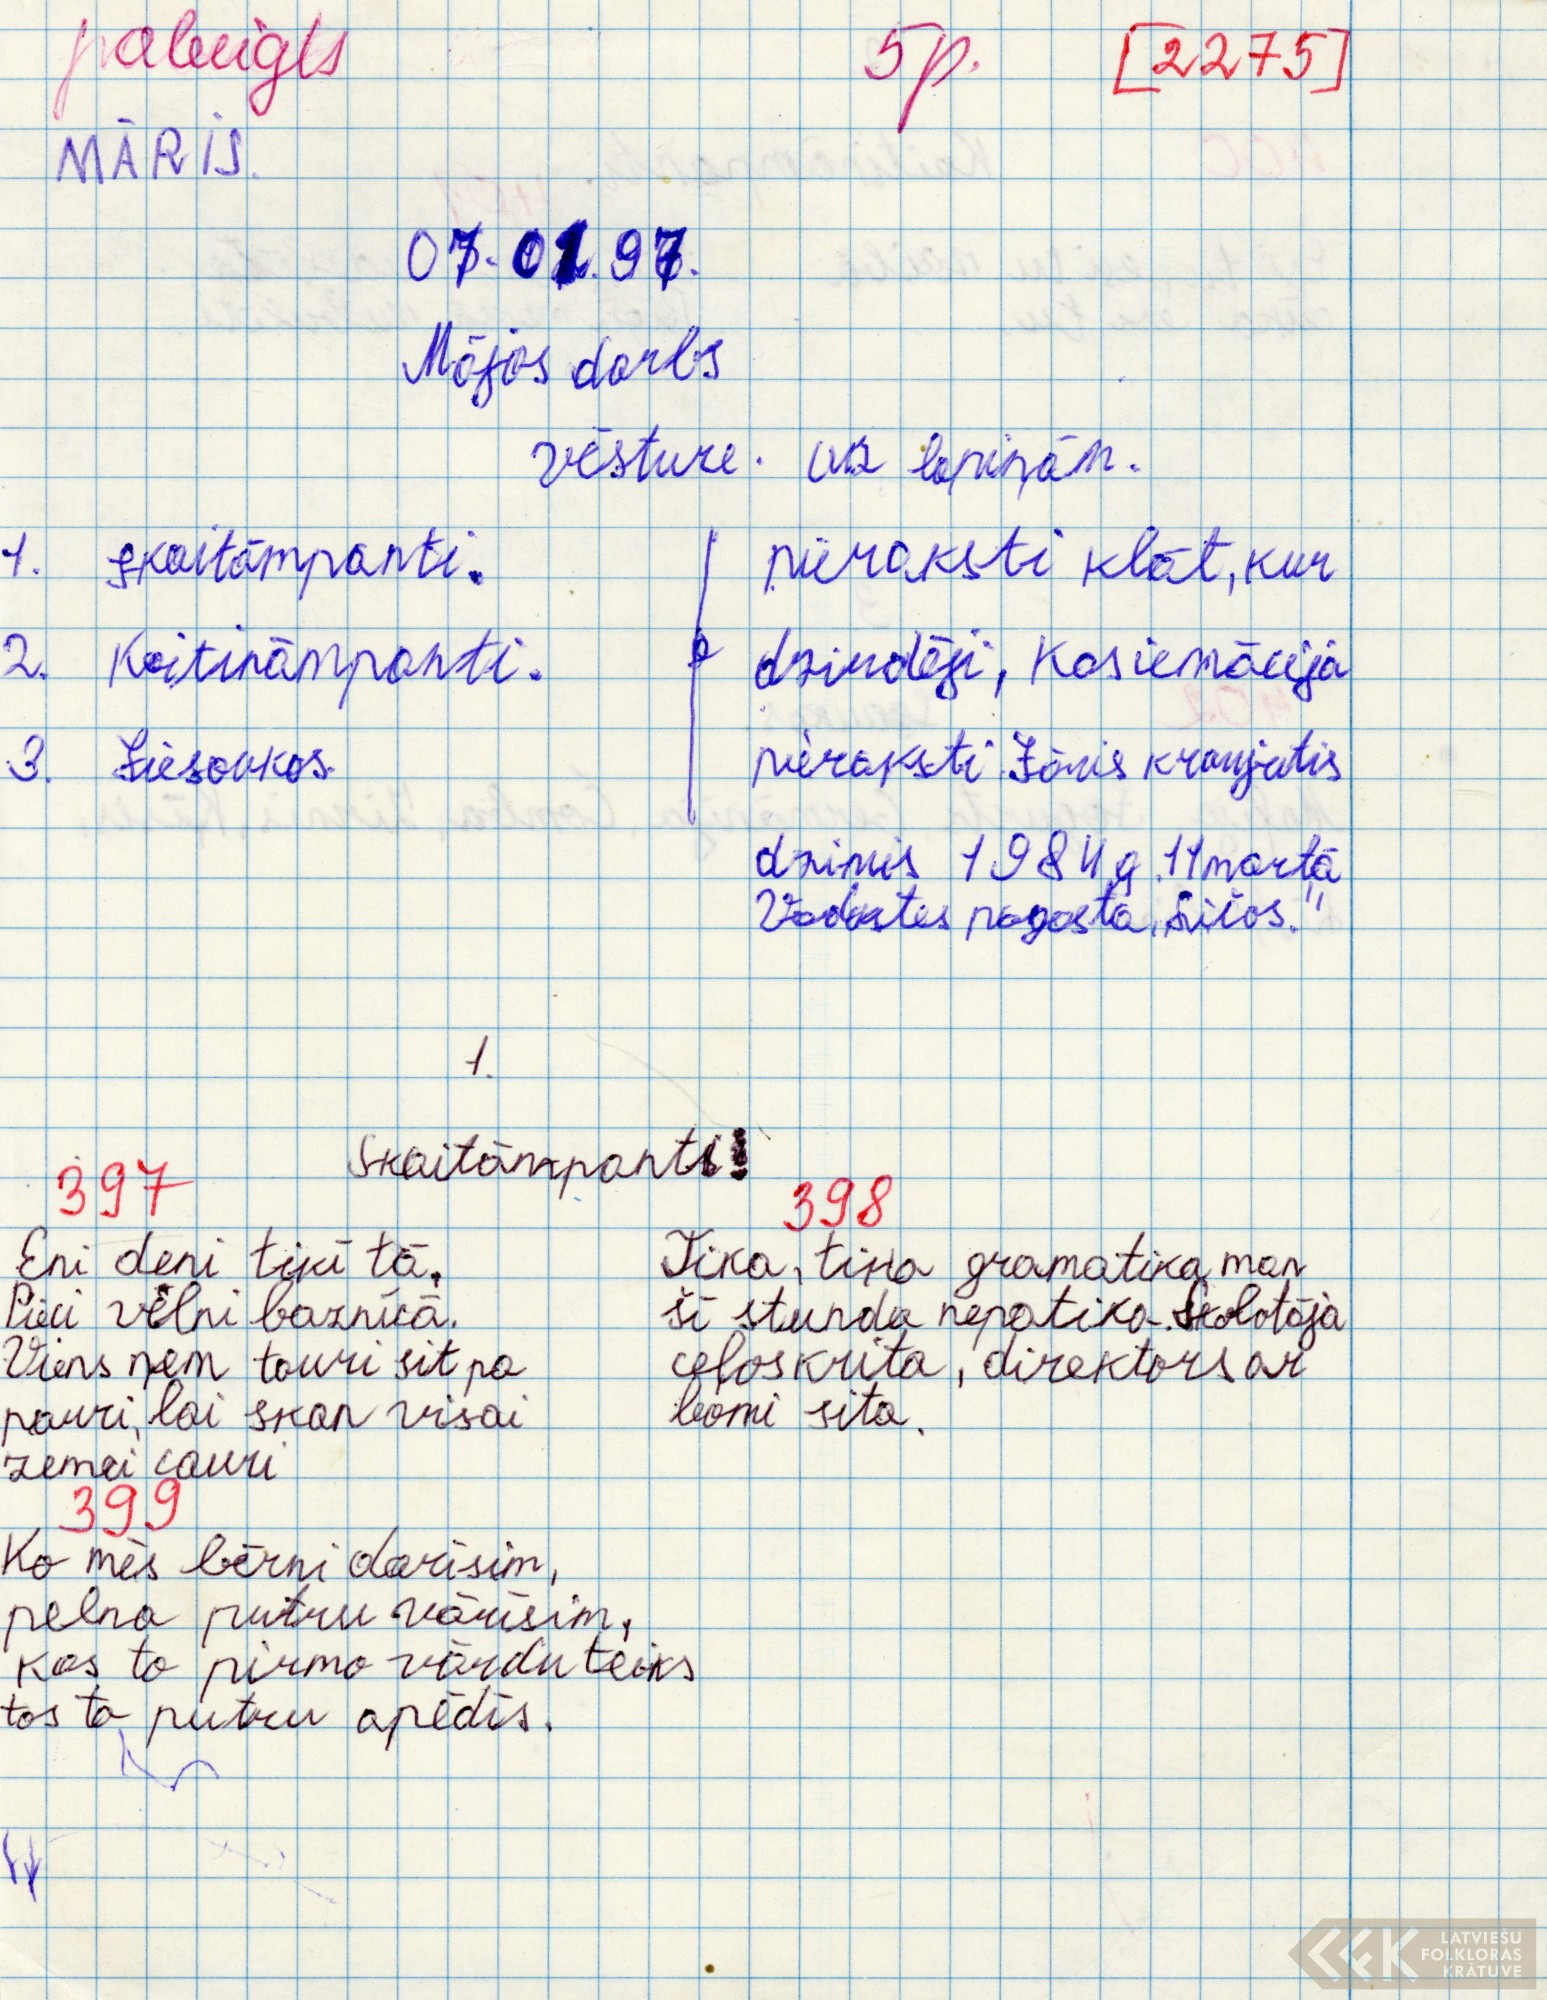 paleigls 5p. [2275]
MĀRIS.
07.01.97.
Mājās darbs
vēsture. uz lapiņām.
1. skaitāmpanti.
2. Kaitināmpanti.
3. Iesaukas.
pieraksti klāt, kur
dzirdēji, Kas iemācija
pieraksti. Jānis
dzimis 1984. g. 11 martā
Vadakstes pagastā,
1.
Skaitāmpanti!
397
Eni deni tiķi tā,
Pieci vēlni baznīcā.
Viens ņem tauri sit pa
pauri, lai skan visai
zemei cauri
398
Tika, tika gramatika, man
šī stunda nepatika. Skolotāja
ceļos krita, direktors ar
bomi sita.
399
Ko mēs bērni darīsim,
pelna putru vārīsim,
kas to pirmo vārdu teiks
tas to putru apēdīs.
LATVIEŠU
FOLKLORAS
KRĀTUVE